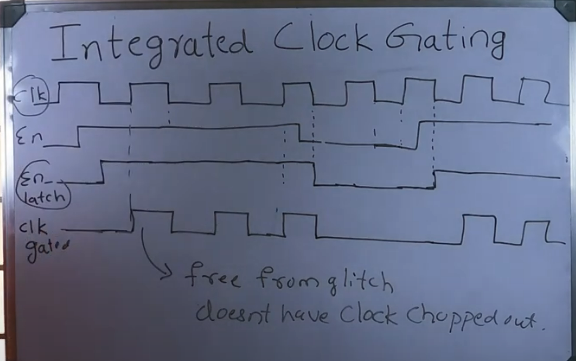 Integrated Clock Gating
Clk
En
En_
latch
clk
gated
free from glitch
doesnt have Clock Chopped out.